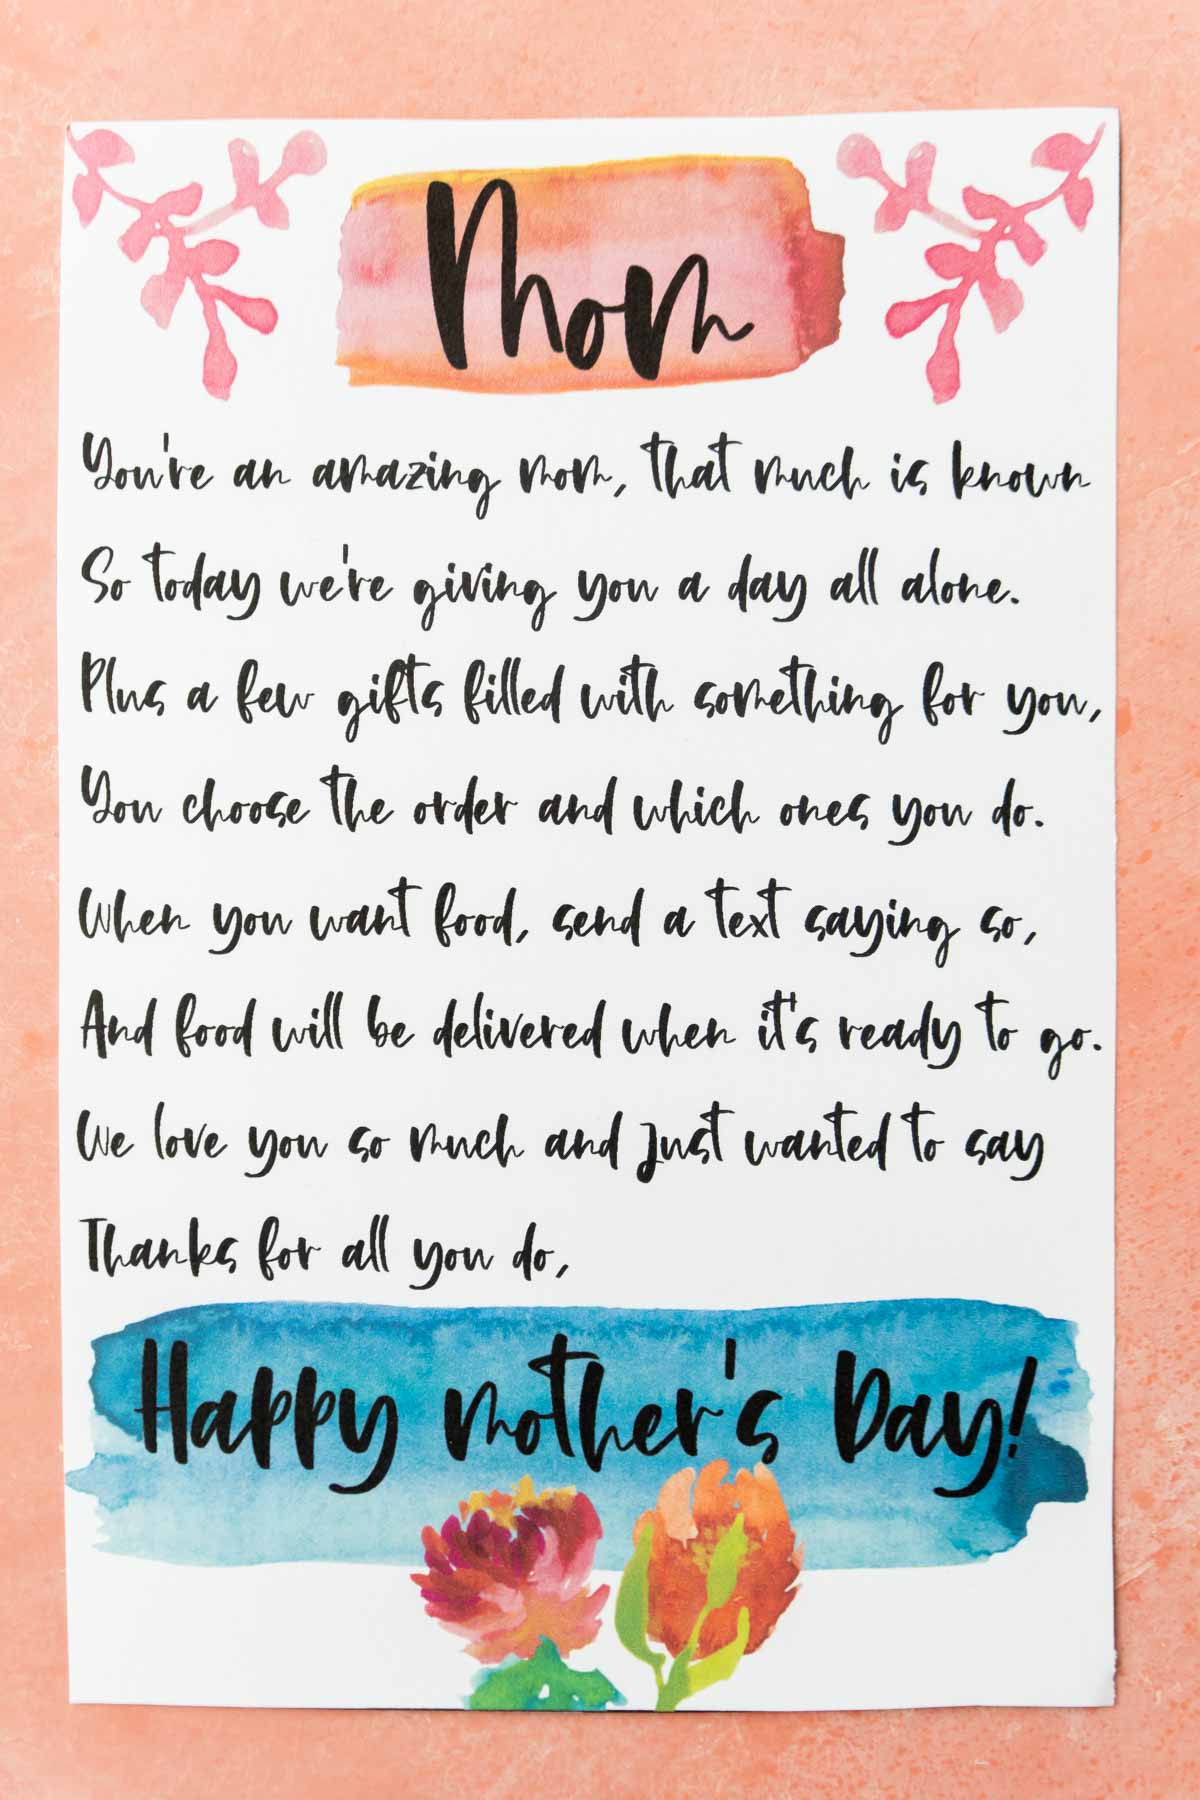 Mom
You're an amazing mom, that much is known
So today we're giving you a day all alone.
Plus a few gifts filled with something for you,
You choose the order and which ones you do.
When you want food, send a text saying so,
And food will be delivered when it's ready to go.
We love you so much and just wanted to say
Thanks for all you do,
Happy mother's Day!